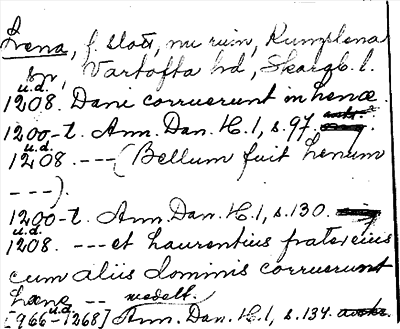 Lena, f. slott, nu ruin, Kungslena
sn, Vartofta hd, Skarab. l.
u.d.
1208. Dani corruerunt in henæ.
1200-t. Ann. Dan. H. 1, s. 97.
u.d.
1208. --- (Bellum fuit henum
---).
1200-t. Ann. Dan. H. 1, s. 130.
u.d.
1208. --- et Laurentius frater eius
cum aliis dominis corruerunt
Læne -- medelt.
[966-u.d. 1268] Ann. Dan. H. 1, s. 134.